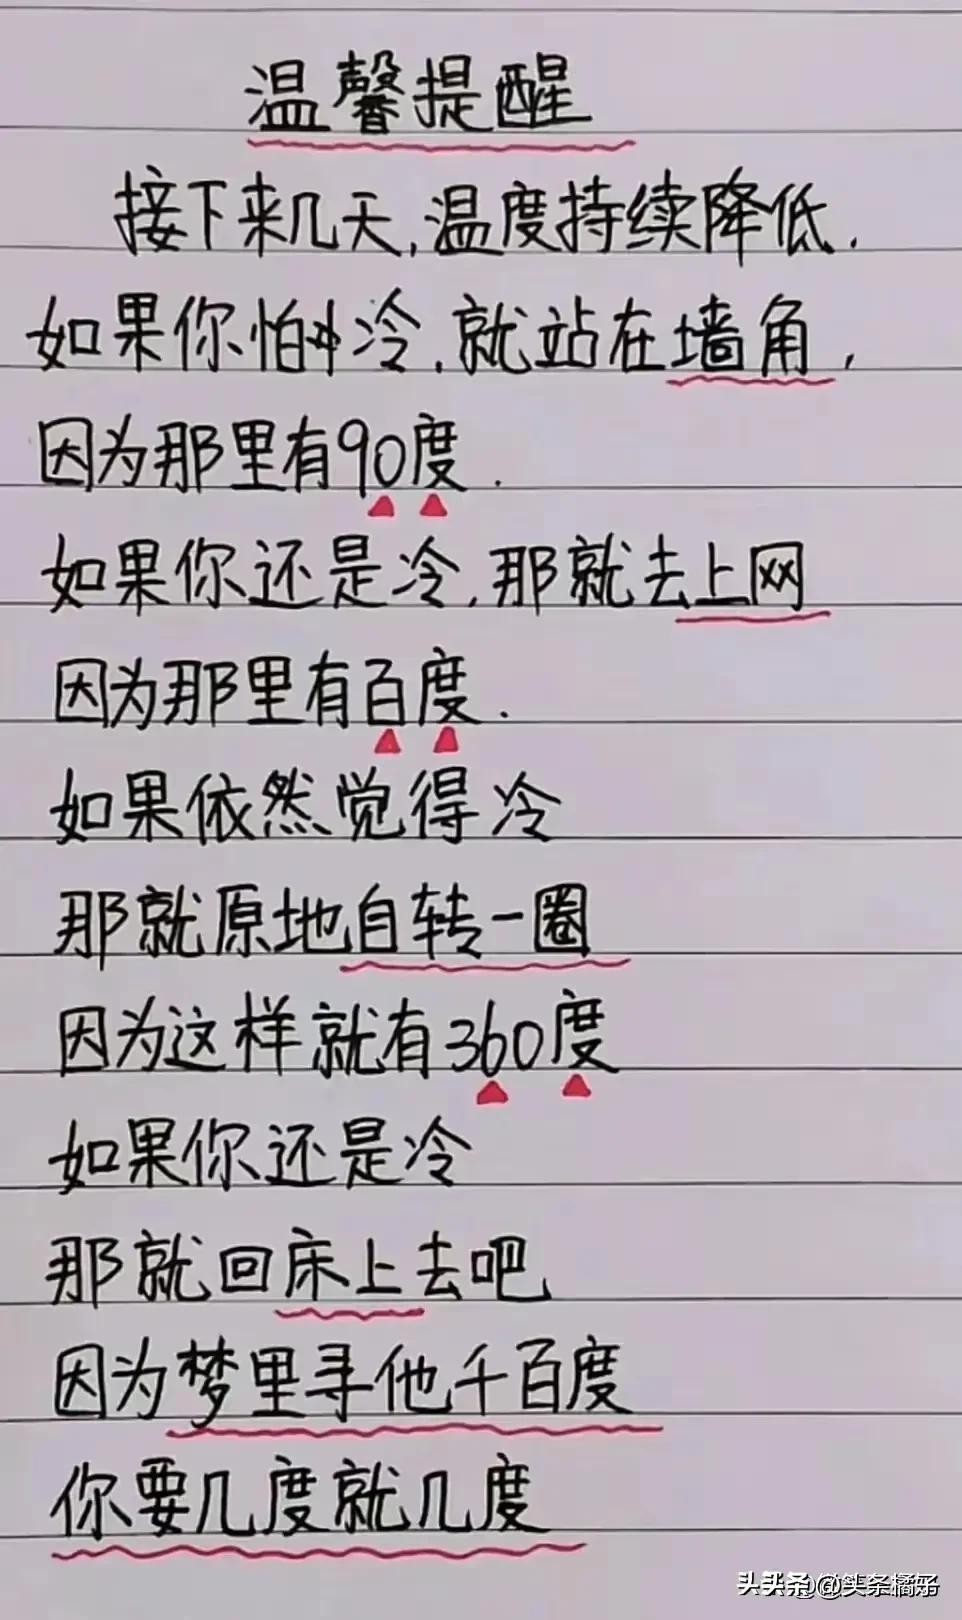 温馨提醒
接下来几天,温度持续降低.
如果你怕冷,就站在墙角,
因为那里有90度.
如果你还是冷,那就去上网
因为那里有百度.
如果依然觉得冷
那就原地自转一圈
因为这样就有360度
如果你还是冷
那就回床上去吧
因为梦里寻他千百度
你要几度就几度
头条@头条橘子